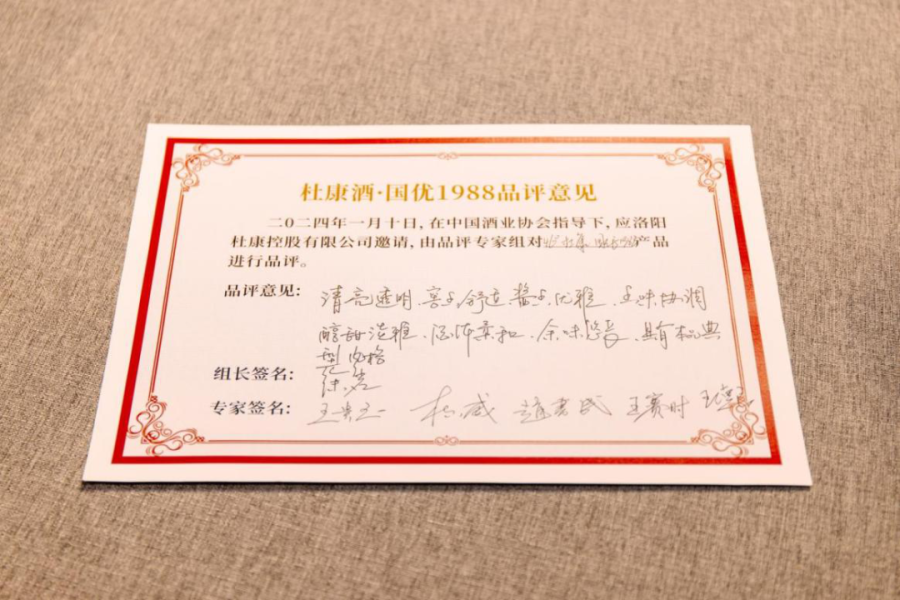 杜康酒·国优1988品评意见
二〇二四年一月十日，在中国酒业协会指导下，应洛阳
杜康控股有限公司邀请，由品评专家组对产品
进行品评。
品评意见：清亮透明、窖香舒适、酱香优雅、五味协调
醇甜淡雅、酒体柔和、余味悠长、具有本品典
型风格
组长签名：
专家签名：王贵玉 杨威 赵书民 王赛时